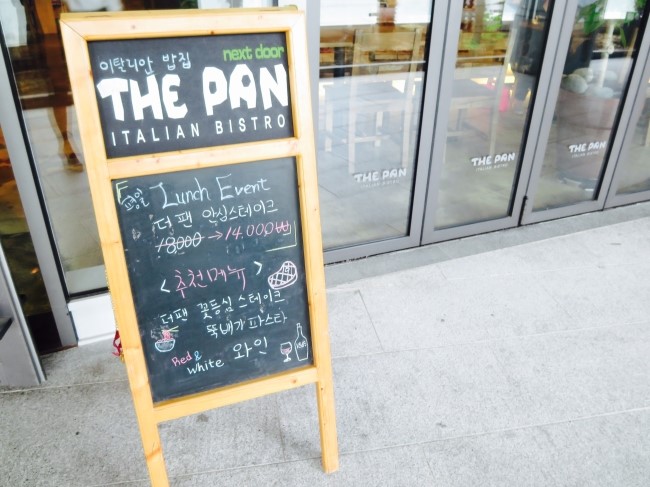 next door
이탈리안 밥집
THE PAN
ITALIAN BISTRO
평일 Lunch Event
더팬 안심스테이크
18,000 → 14.000₩
< 추천메뉴 >
더팬 꽃등심 스테이크
뚝배기 파스타
Red & White 와인
THE PAN
ITALIAN BISTRO
THE PAN
ITALIAN BISTRO
THE PAN
ITALIAN BISTRO